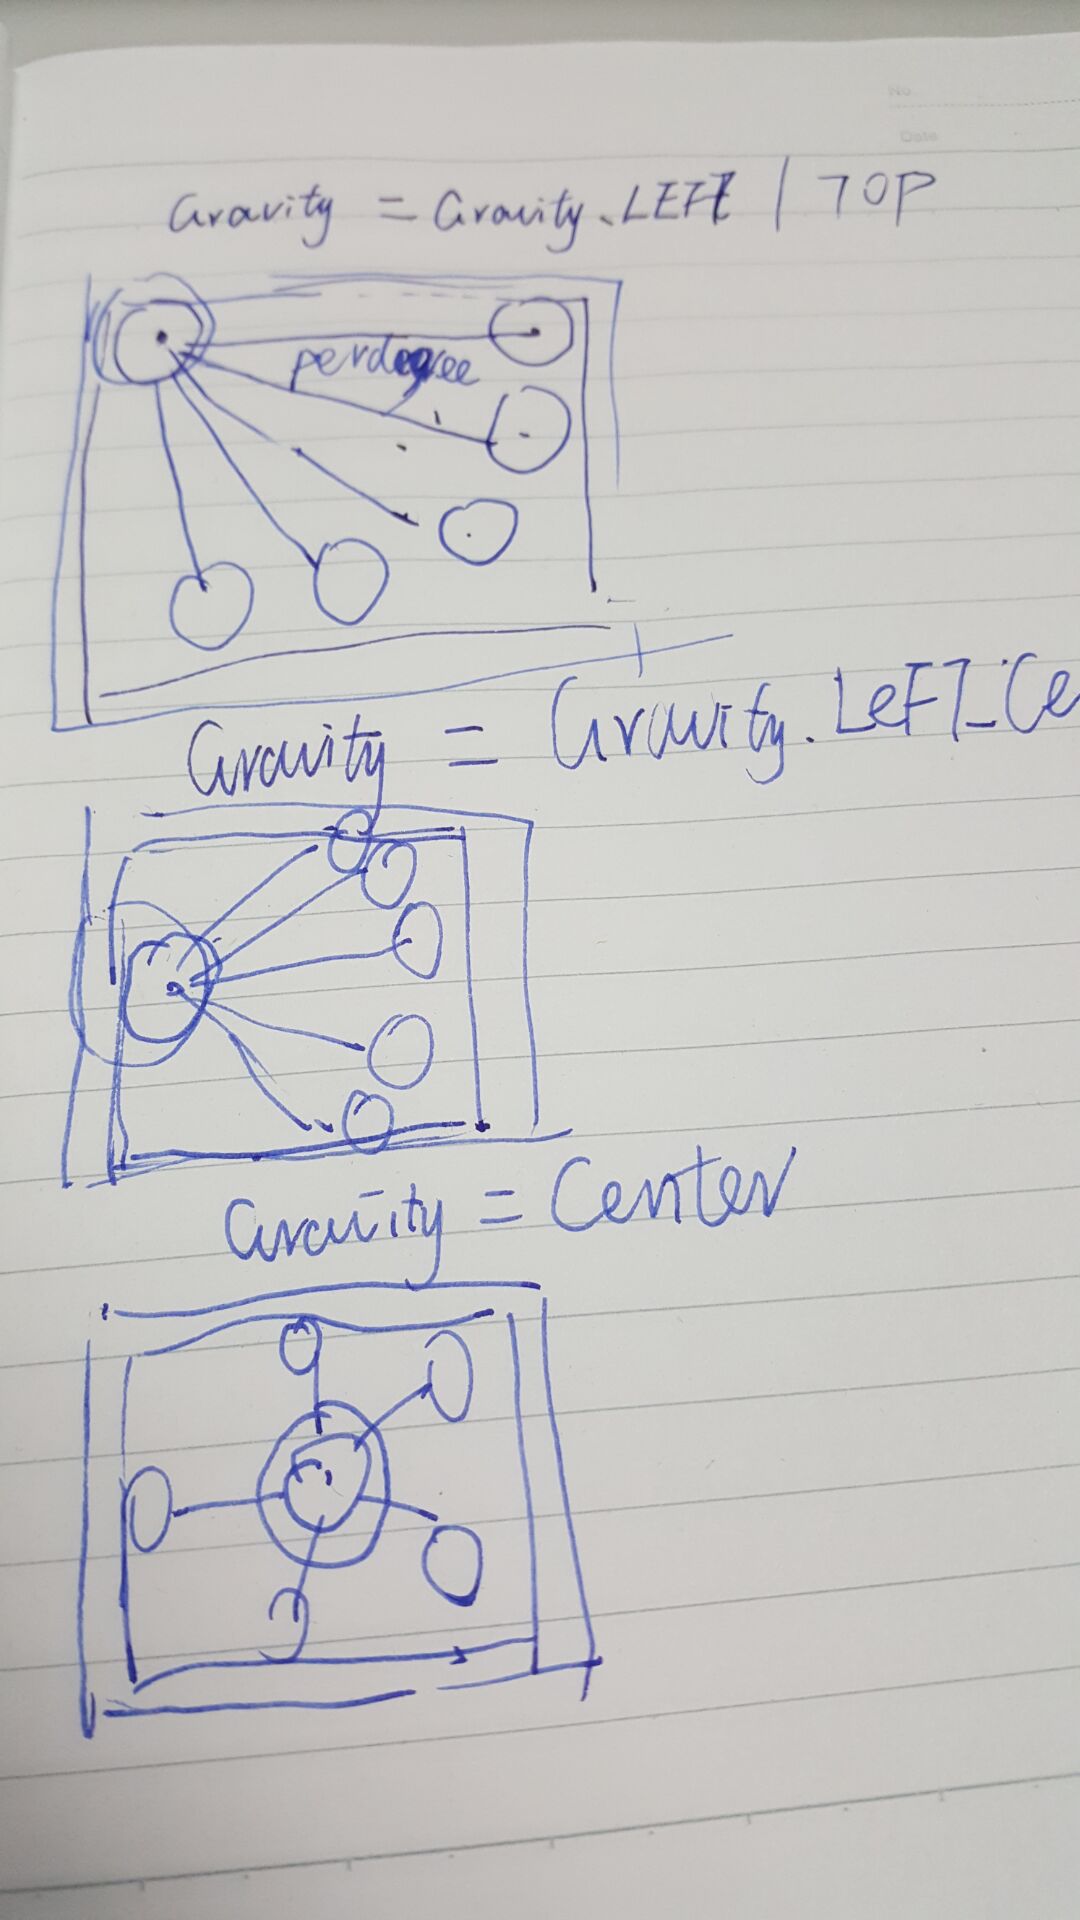 No.
Date
Gravity = Gravity.LEFT | TOP
perdegree
Gravity = Gravity.LeFT_Ce
Gravity = Center